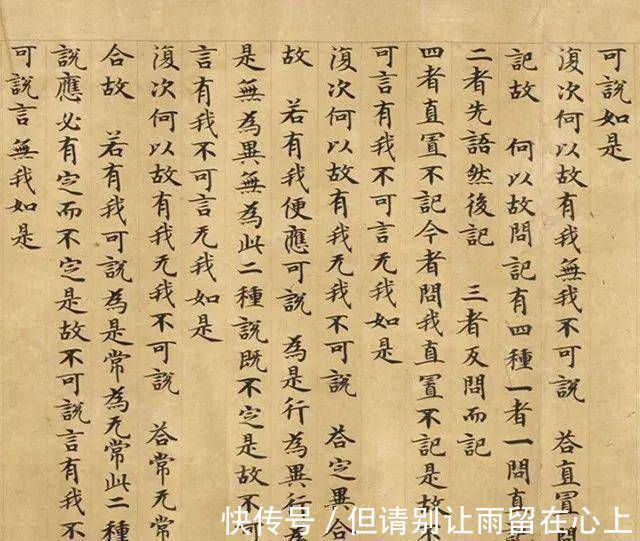 可說如是
復次何以故有我無我不可說 荅直置問
記故 何以故問記有四種一者一問直
二者先語然後記 三者反問而記
四者直置不記今者問我直置不記是故
可言有我不可言无我如是
復次何以故有我无我不可說 荅定異合
故 若有我便應可說 為是行為異行
是無為異無為此二種說既不定是故不
言有我不可言无我如是
復次何以故有我无我不可說 荅常无常
合故 若有我可說為是常為无常此二種
說應必有定而不定是故不可說言有我不
可說言無我如是
快传号 / 但请别让雨留在心上